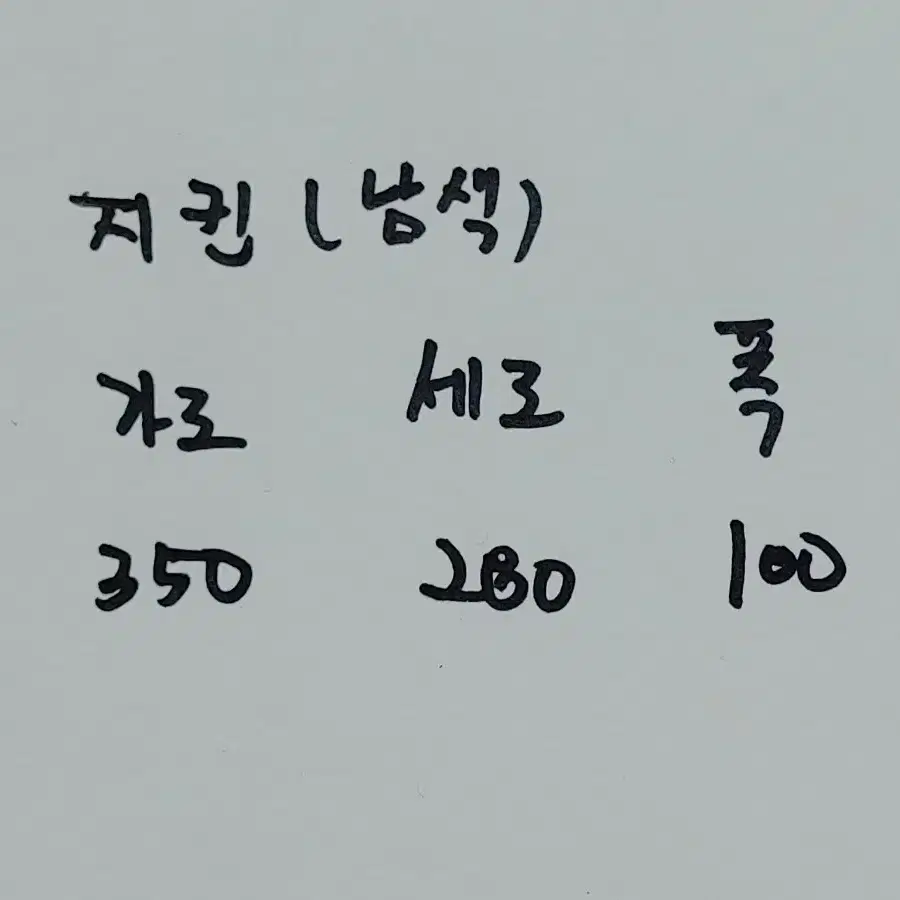 지퀸(남색)
가로 세로 폭
350 280 100